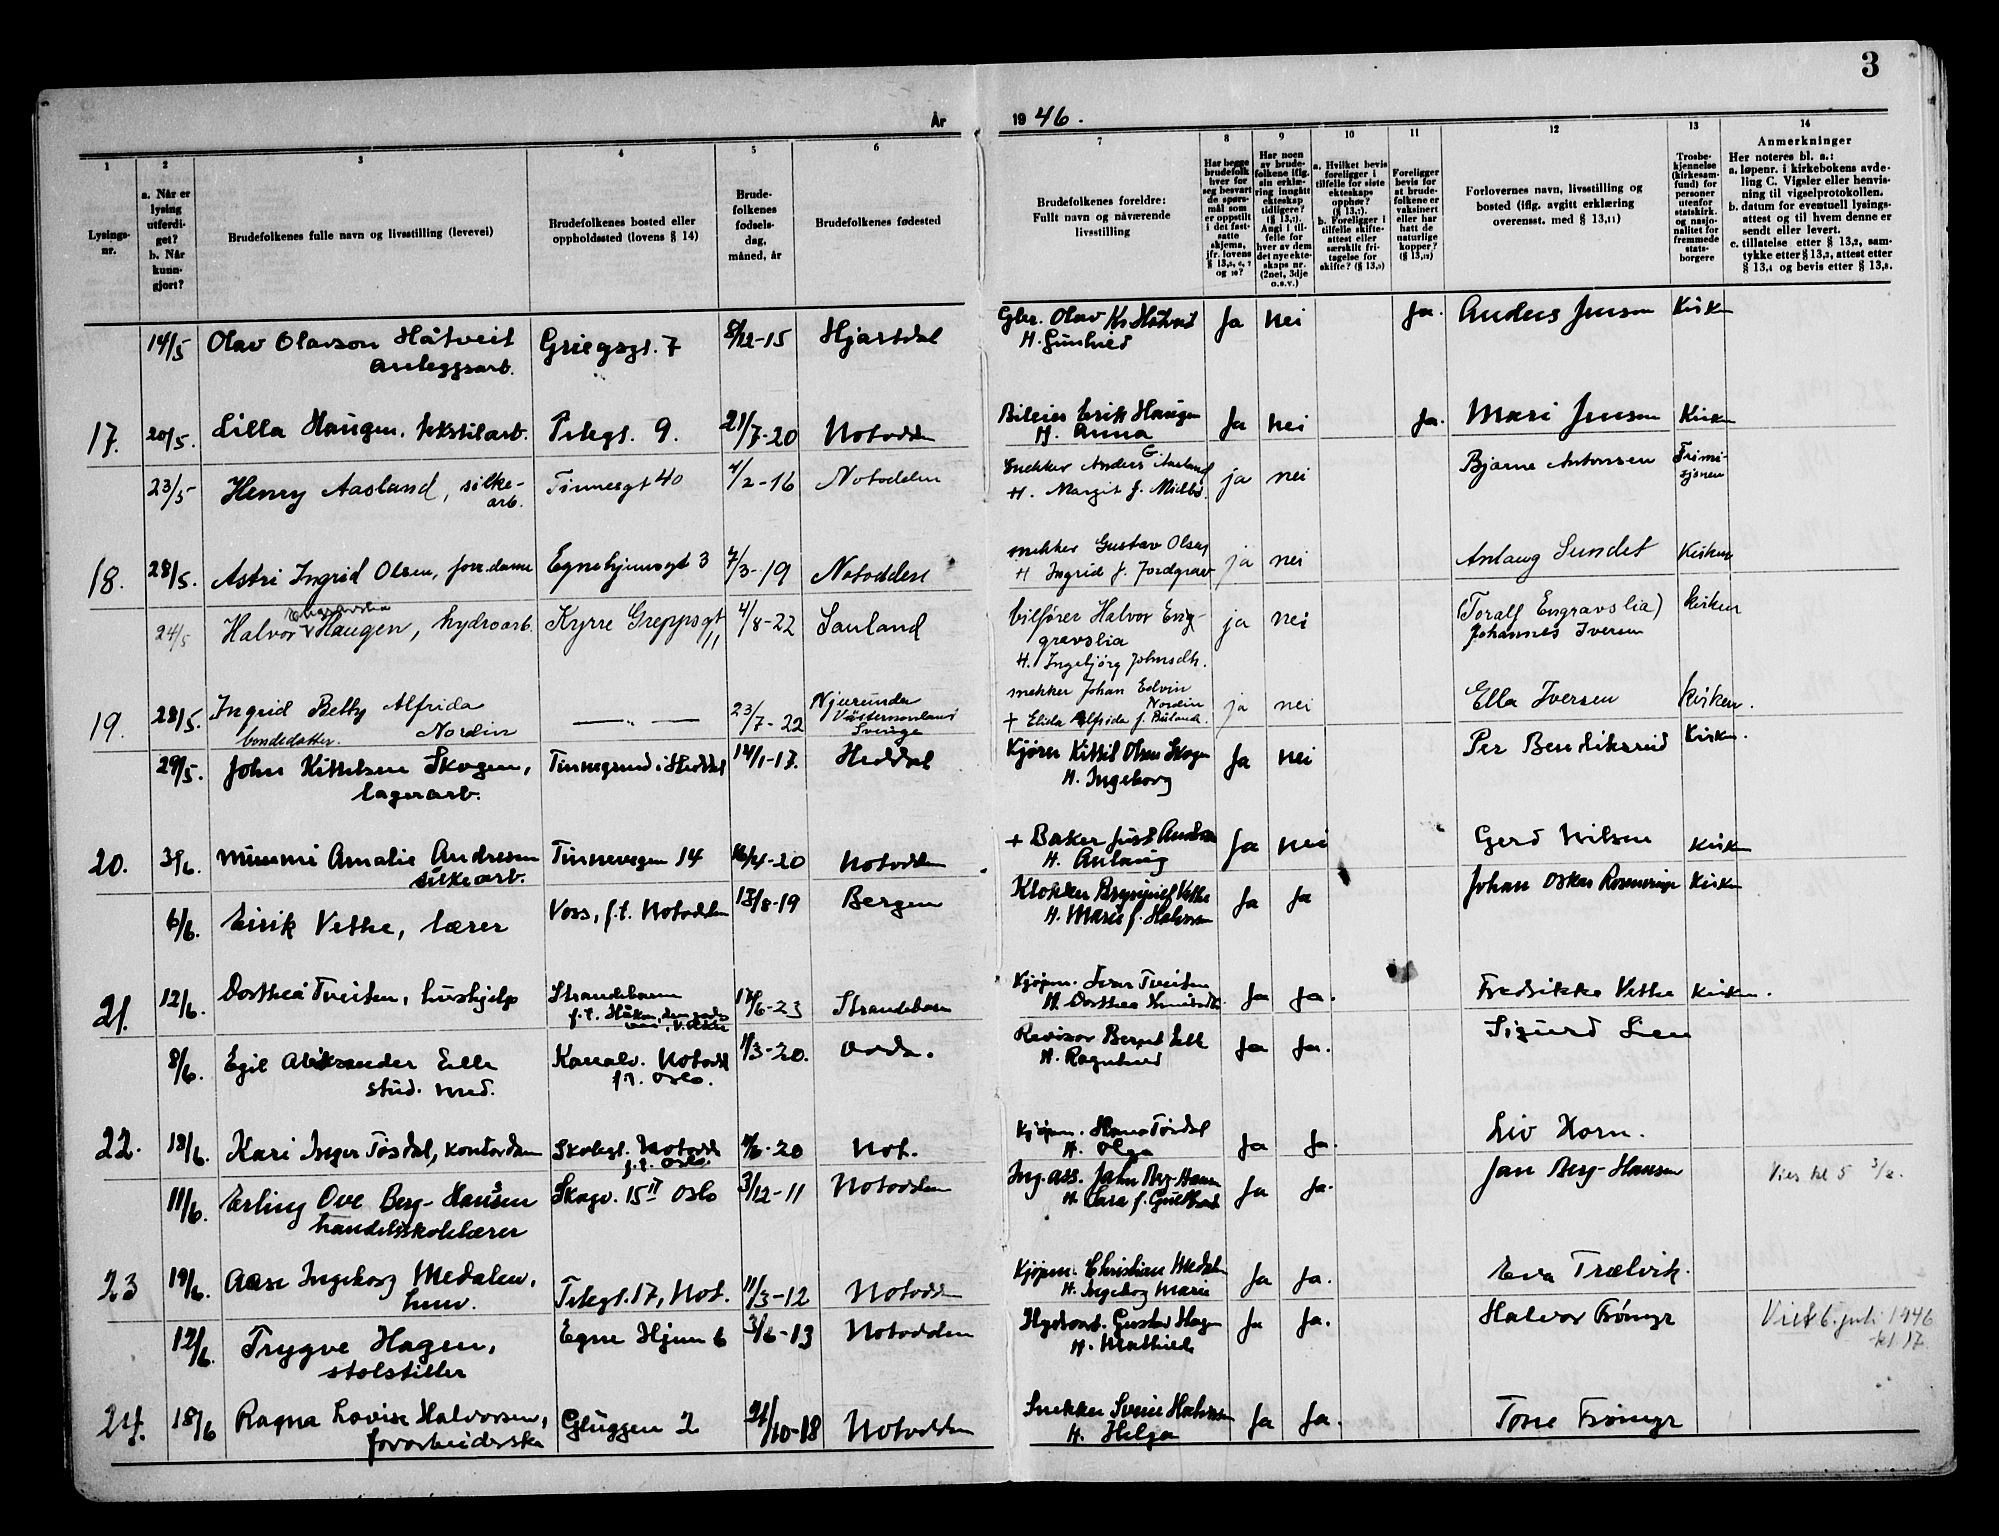 3
År
19 46.
1
2
3
4
5
6
7
8
9
10
11
12
13
14
Lysings-
nr.
a. Når er
lysing
utferdi-
get?
b. Når
kunn-
gjort?
Brudefolkenes fulle navn og livsstilling (levevei)
Brudefolkenes bosted eller
oppholdssted (lovens § 14)
Brude-
folkenes
fødsels-
dag,
måned, år
Brudefolkenes fødested
Brudefolkenes foreldre:
Fullt navn og nåværende
livsstilling
Har begge
brudefolk
hver for
seg besvart
de spørs-
mål som
er oppstilt
i det fast-
satte
skjema,
jfr. lovens
Har noen
av brude-
folkene iflg.
sin erklæ-
ring inngått
ekteskap
tidligere?
Angi i til-
felle for
hver av dem
det nye ekte-
skaps nr.
(2net, 3dje
o.s.v.)
a. Hvilket bevis
foreligger i
tilfelle for siste
ekteskaps
opphør?
b. Foreligger i
tilfelle skifte-
attest eller
særskilt fri-
tagelse for
skifte?
Foreligger
bevis for
at brude-
folkene er
vaksinert
eller har
hatt de
naturlige
kopper?
Forlovernes navn, livsstilling og
bosted (iflg. avgitt erklæring
overensst. med § 13,11)
Trosbe-
kjennelse
(kirkesam-
fund) for
personer
utenfor
statskirk.
og nasjo-
nalitet for
fremmede
stats-
borgere
Anmerkninger
Her noteres bl. a.:
a. løpenr. i kirkebokens avde-
ling C. Vigsler eller henvis-
ning til vigselprotokollen.
b. datum for eventuell lysings-
attest og til hvem denne er
sendt eller levert.
c. tillatelse etter § 13,2, sam-
tykke etter § 13,3, attest etter
§ 13,4 og bevis etter § 13,8.
14/5 Olav Olavson Håtveit Griegsgt. 7 8/12-15 Hjartdal Gbr. Olav Ja nei Ja. Anders Jensen
anleggsarb. H. Gunhild
17. 20/5. Lilla Haugen, tekstilarb. Telegt. 9. 21/7-20 Notodden Erik Haugen Ja nei Ja. Mari Jensen
H. Anna
23/5 Henry Aasland, silke- Tinnesgt 40 4/2-16 Notodden Snekker Anders G. Aasland ja nei Bjarne Antonsen Frimi-
arb. H. Margit f. sjonen
18. 28/5. Astri Ingrid Olsen, forr.dame Egnehjemsgt 3 7/3-19 Notodden snekker Gustav Olsen ja nei Anlaug Sundet Kirken
H Ingrid f. Jordgrav
24/5 Halvor Haugen, hydroarb. Kyrre Greppsgt 4/8-22 Sauland bilfører Halvor Eng- ja nei (Toralf Engravslia) kirken
Engravslia 11 gravslia Johannes Iversen
H. Ingebjørg Johnsdtr.
19. 28/5. Ingrid Betty Alfrida — " — 23/7-22 Njurunda snekker Johan Edvin ja nei Ella Iversen kirken.
bondedatter. Nordin Västernorrland Nordin
Sverige + Elida Alfrida f.
29/5. John Kittelsen Skogen, Tinnegrend i Heddal 14/1-17. Heddal Kjører Kittil Olsen Skogen Ja nei Per Bendiksrud
lagerarb. H. Ingeborg
20. 3/6. Mimmi Amalie Andresen Tinnevegen 14 16/4-20 Notodden + Baker Just Andresen Ja nei Gerd Nilsen
silkearb. H. Anlaug
6/6. Eirik Vethe, lærer Voss, f.t. Notodden 15/8-19 Bergen Klokker Vethe Ja Ja Johan Oskar
H. Marie f. Halvorsen
21. 12/6. Dorthea Tveiten, hushjelp Strandebarm 17/6-23 Strandebarm Kjøpm. Ivar Tveiten Ja Ja. Fredrikke Vethe
H. Dorthea
8/6. Egil Aleksander Elle Kanalv. Notodd 11/3-20. Odda. Revisor Elle Ja Ja. Sigurd Lien
stud. med. f.t. Oslo. H. Ragnhild
22. 18/6. Kari Inger Tosdal, kontordam Skolegt. Notodd 11/6-20 Not. Kjøpm. Hans Tosdal Ja Ja. Liv Horn.
f.t. Oslo. H. Olga
11/6. Erling Ove Berg-Hansen Skogv. 15 II Oslo 3/12-11 Notodden Ing. ass. John Berg-Hansen Ja Ja. Jan Berg-Hansen Vies kl 5
handelsskolelærer H. Lara f.
23 19/6. Aase Ingeborg Medalen, Telegt. 17, Not. 11/3-12 Notodden Kjøpm. Christian Medalen Ja Ja. Eva Trælvik.
H. Ingeborg Marie
12/6. Trygve Hagen, Egne Hjem 6 3/6-13 Notodden Hydroarb. Gustav Hagen Ja Ja. Halvor Frømyr Viet 6. juli 1946
stolstiller H. Mathilde kl. 17
24. 18/6 Ragna Lovise Halvorsen, Gluggen 2 24/10-18 Notodden Snekker Svein Halvorsen Ja Ja. Tone Frømyr
forarbeiderske H. Helga